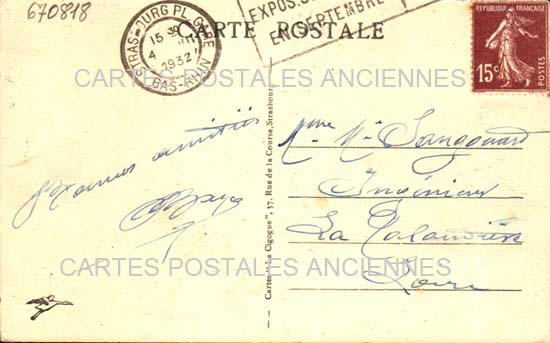 670818
CARTE POSTALE
STRASBOURG PL. GARE
15 30
4 VIII
1932
BAS-RHIN
EXPOS
EN SEPTEMBRE
REPUBLIQUE FRANÇAISE
15c
POSTES
CARTES POSTALES ANCIENNES
Cartes "La Cigogne", 37, Rue de la Course, Strasbourg
amitiés
Mme Mr
Ingénieur
La
Loire
CARTES POSTALES ANCIENNES